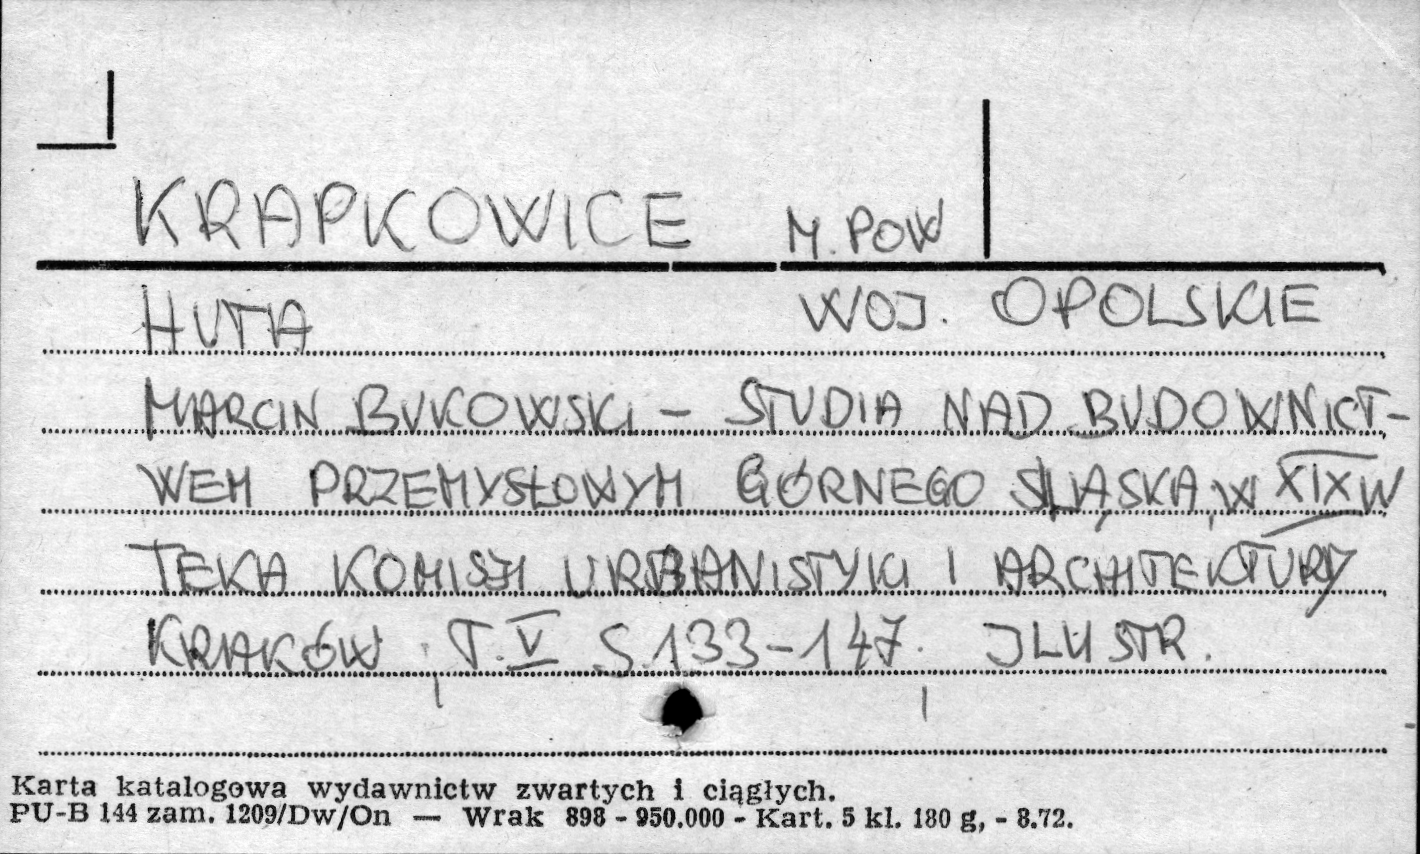 KRAPKOWICE M. POW
HUTA WOJ. OPOLSKIE
MARCIN BUKOWSKI – STUDIA NAD BUDOWNICT-
WEM PRZEMYSŁOWYM GÓRNEGO ŚLĄSKA, W XIX W
TEKA KOMISJI URBANISTYKI I ARCHITEKTURY
KRAKÓW, T. V S. 133-147. JLUSTR.
Karta katalogowa wydawnictw zwartych i ciągłych.
PU-B 144 zam. 1209/Dw/On — Wrak 898 - 950.000 - Kart. 5 kl. 180 g, - 8.72.